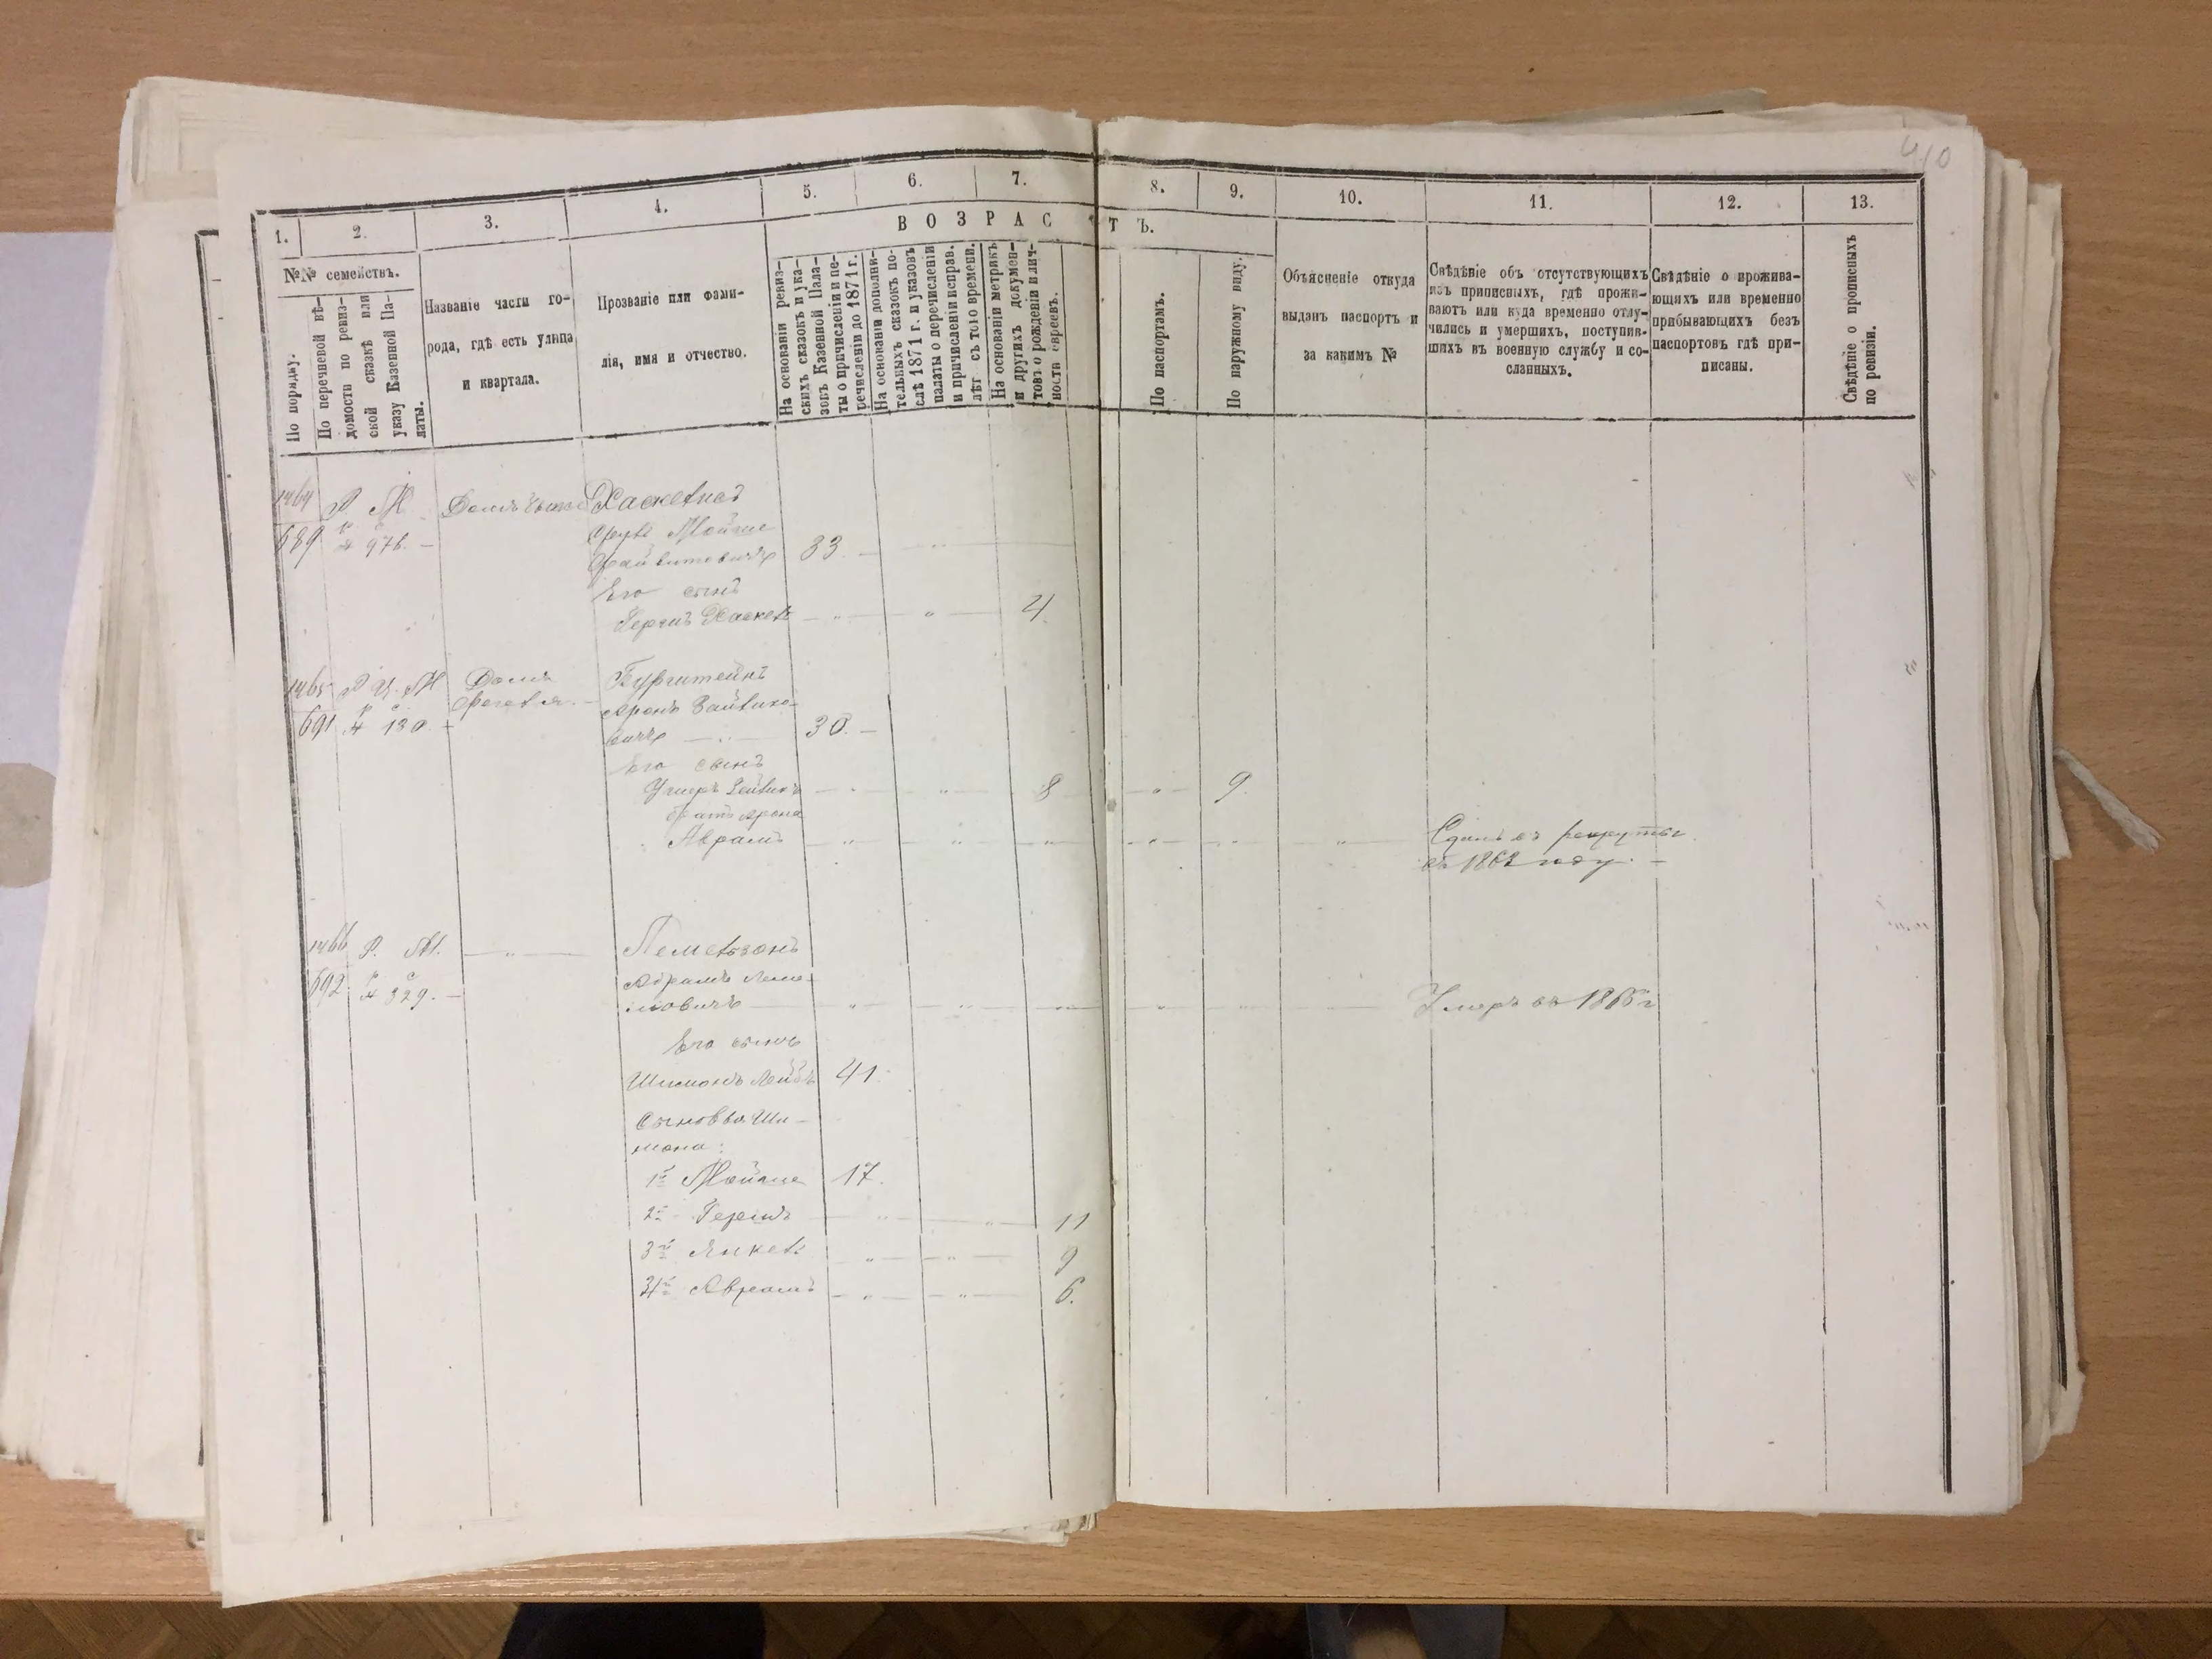 410
1.
2.
3.
4.
5.
6.
7.
8.
9.
10.
11.
12.
13.
ВОЗРАСТЪ.
№№ семействъ.
По порядку.
По перечневой вѣ-
домости по ревиз-
ской сказкѣ или
указу Казенной Па-
латы.
Названіе части го-
рода, гдѣ есть улица
и квартала.
Прозваніе или фами-
лія, имя и отчество.
На основаніи ревиз-
скихъ сказокъ и ука-
зовъ Казенной Пала-
ты о причисленіи и пе-
речисленіи до 1871 г.
На основаніи дополни-
тельныхъ сказокъ по-
слѣ 1871 г. и указовъ
палаты о перечисленіи
и причисленіи исправ.
лѣт съ того времени.
На основаніи метрикъ
и другихъ докумен-
товъ о рожденіи и лич-
ности евреевъ.
По паспортамъ.
По наружному виду.
Объясненіе откуда
выданъ паспортъ и
за какимъ №
Свѣдѣніе объ отсутствующихъ
изъ приписныхъ, гдѣ прожи-
ваютъ или куда временно отлу-
чились и умершихъ, поступив-
шихъ въ военную службу и со-
сланныхъ.
Свѣдѣніе о прожива-
ющихъ или временно
прибывающихъ безъ
паспортовъ гдѣ при-
писаны.
Свѣдѣніе о прописныхъ
по ревизіи.
1464 Р. М. Домъ
689 976.
Мойше
33.
Его сынъ
Гершъ Хаскель 4.
1465 Р. Ц. М. Домъ Бургштейнъ
691 130. Аронъ Зайвило-
вичъ 30.
Его сынъ
8 9.
братъ Арона
Абрамъ Сданъ въ рекруты
въ 1862 году.
1466 Р. М. Пемельзонъ
692 329. Абрамъ
мовичъ Умеръ въ 1866 г
Его сынъ
Шимонъ Лейбъ 41.
Сыновья Ши-
мона:
1й Мойше 17.
2й Гершъ 11
3й Янкель 9
4й Абрамъ 6.